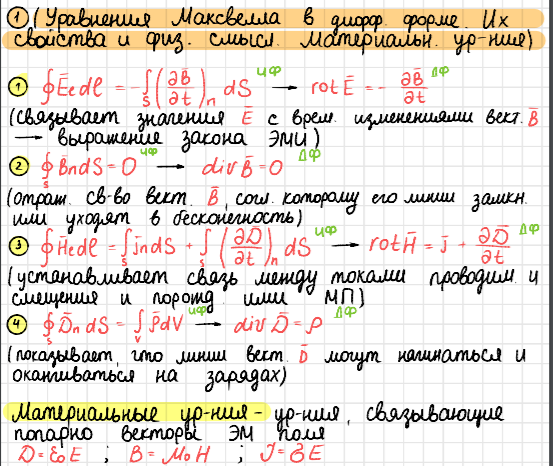 ① (Уравнения Максвелла в дифф. форме. Их
свойства и физ. смысл. Материальн. ур-ния)
① ∮E̅ℓdℓ = -∫ₛ(∂B̅/∂t)ₙ dS ИФ → rotE̅ = - ∂B̅/∂t ДФ
(связывает значения E̅ с врем. изменениями вект. B̅
→ выражение закона ЭМИ)
② ∮ₛ B̅ndS = 0 ИФ → divB̅ = 0 ДФ
(отраж. св-во вект. B̅, согл. которому его линии замкн.
или уходят в бесконечность)
③ ∮H̅ℓdℓ = ∫ₛj̅ndS + ∫ₛ(∂D̅/∂t)ₙ dS ИФ → rotH̅ = j̅ + ∂D̅/∂t ДФ
(устанавливает связь между токами проводим. и
смещения и порожд ими МП)
④ ∮ₛ D̅n dS = ∫ᵥρ̅dV ИФ → div D̅ = ρ ДФ
(показывает, что линии вект. D̅ могут начинаться и
оканчиваться на зарядах)
Материальные ур-ния - ур-ния, связывающие
попарно векторы ЭМ поля
D = ε₀E ; B = μ₀H ; J = σE